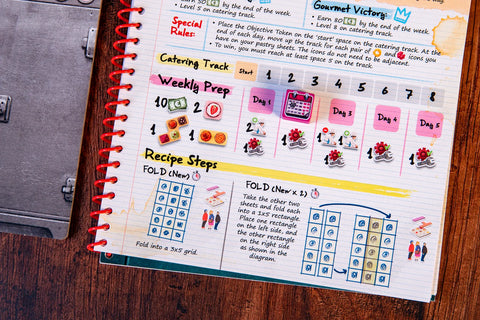 Earn 30 by the end of the week.
• Level 5 on catering track.
Gourmet Victory:
• Earn 80 by the end of the week.
• Level 5 on catering track.
Special Rules:
• Place the Objective Token on the 'start' space on the catering track. At the
end of each day, move up the track for each pair of and icons you
have on your pastry sheets. The icons do not need to be adjacent.
• To win, you must reach at least space 5 on the track.
Catering Track Start 1 2 3 4 5 6 7 8
Weekly Prep
10 2
1 1
Day 1 Day 3 Day 4 Day 5
1 1 1 1 1
Recipe Steps
FOLD (New)
Fold into a 3x5 grid.
FOLD (New x 2)
Take the other two
sheets and fold each
into a 1x5 rectangle.
Place one rectangle
on the left side, and
the other rectangle
on the right side
as shown in the
diagram.